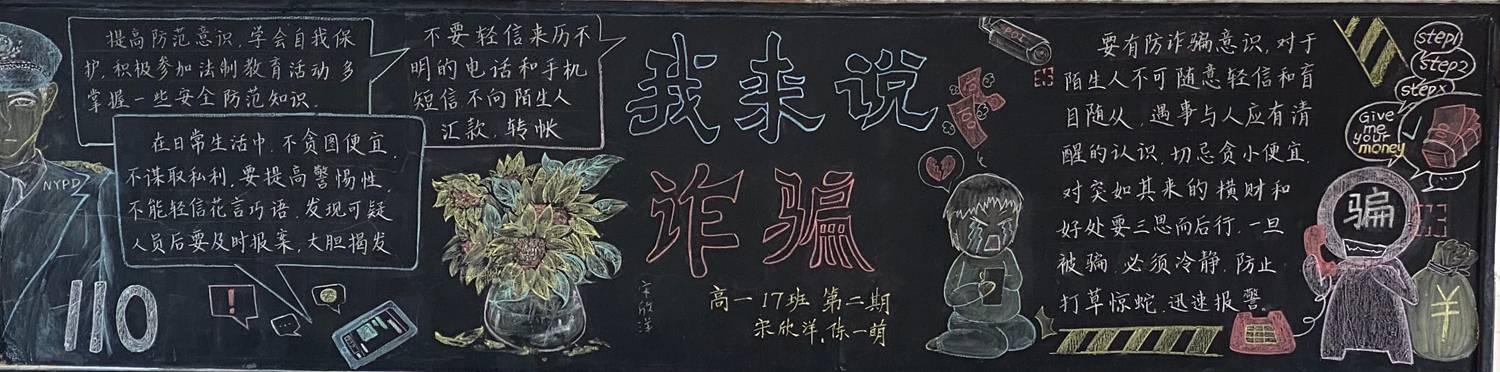 提高防范意识，学会自我保
护，积极参加法制教育活动 多
掌握一些安全防范知识．
不要轻信来历不
明的电话和手机
短信 不向陌生人
汇款，转帐
在日常生活中，不贪图便宜，
不谋取私利，要提高警惕性，
不能轻信花言巧语，发现可疑
人员后要及时报案，大胆揭发
NYPD
110
!
我来说
诈骗
宋欣洋
高一17班 第二期
宋欣洋，陈一萌
要有防诈骗意识，对于
陌生人不可随意轻信和盲
目随从，遇事与人应有清
醒的认识，切忌贪小便宜．
对突如其来的横财和
好处要三思而后行．一旦
被骗，必须冷静，防止
打草惊蛇，迅速报警．
step1
step2
stepx
Give
me
your
money
骗
¥